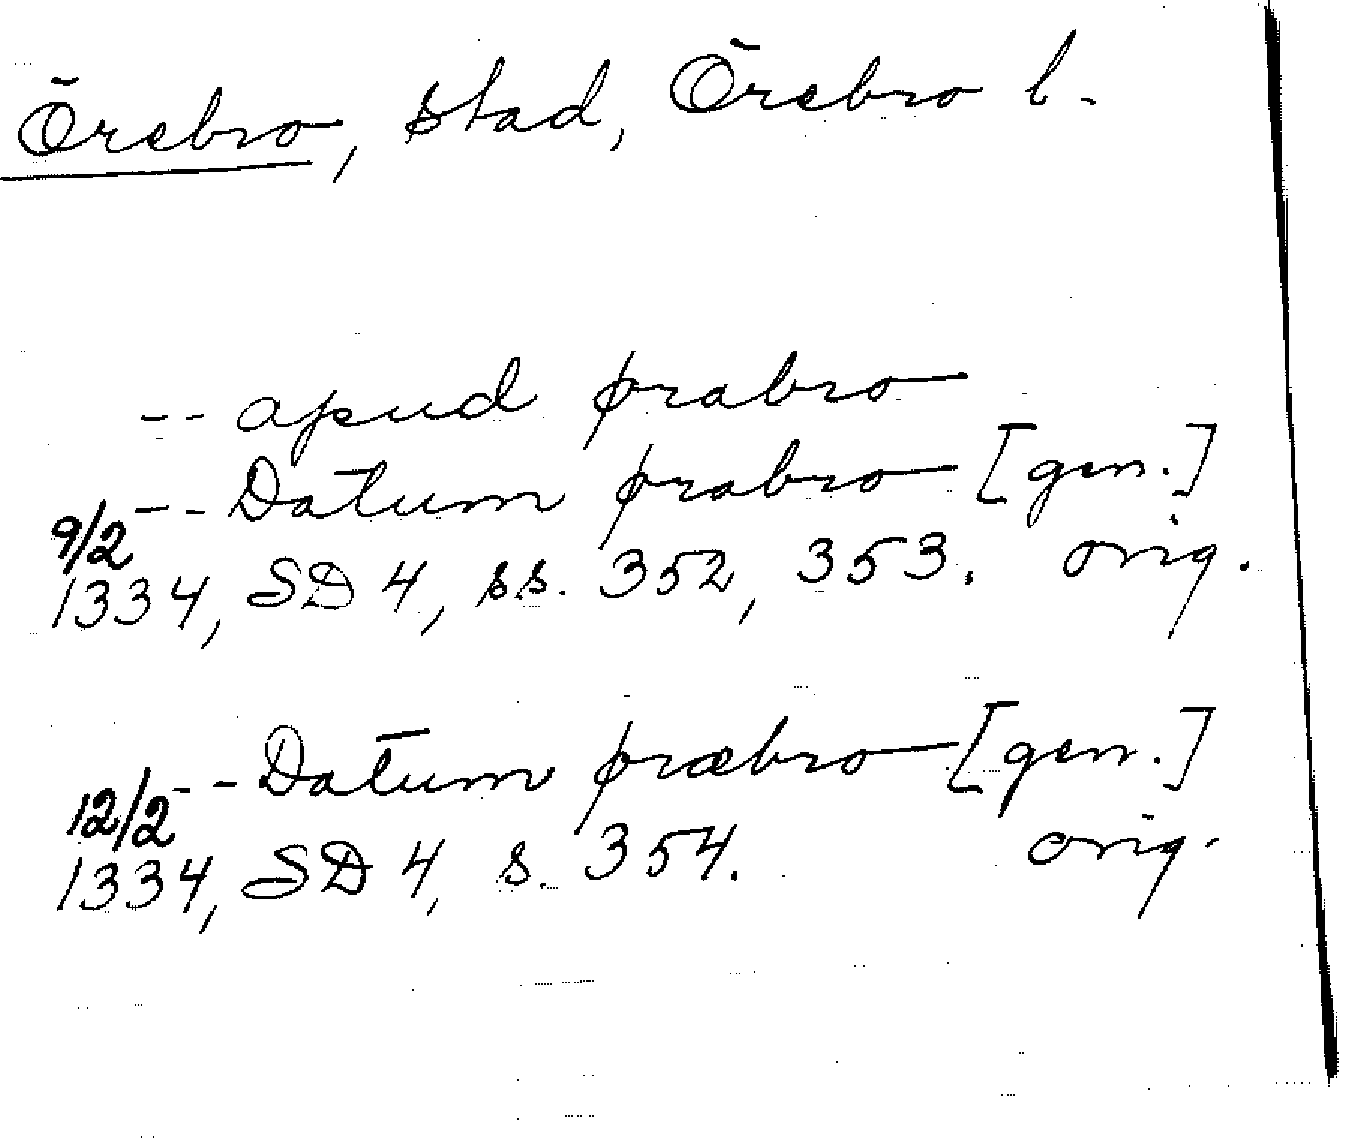 Örebro, stad, Örebro l.
-- apud ørabro
-- Datum ørabro [gen.]
9/2
1334, SD 4, ss. 352, 353. orig.
-- Datum øræbro [gen.]
12/2
1334, SD 4, s. 354. orig.